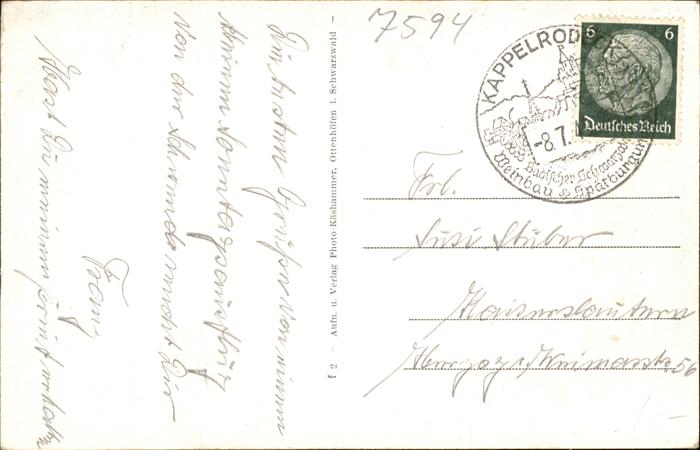 7594
KAPPELROD
-8.7.
Badischer Schwarzwald
Weinbau
6 6
Deutsches Reich
Die besten Grüße von meinem
kleinen Sonntagsausflug
von der sendet Dir
Franz
Hast Du meinen Brief erhalten
f 2 – Aufn. u. Verlag Photo Käshammer, Ottenhöfen i. Schwarzwald –
Frl.
Susi Stüber
Kaiserslautern
Herzog v. Weimarstr. 56